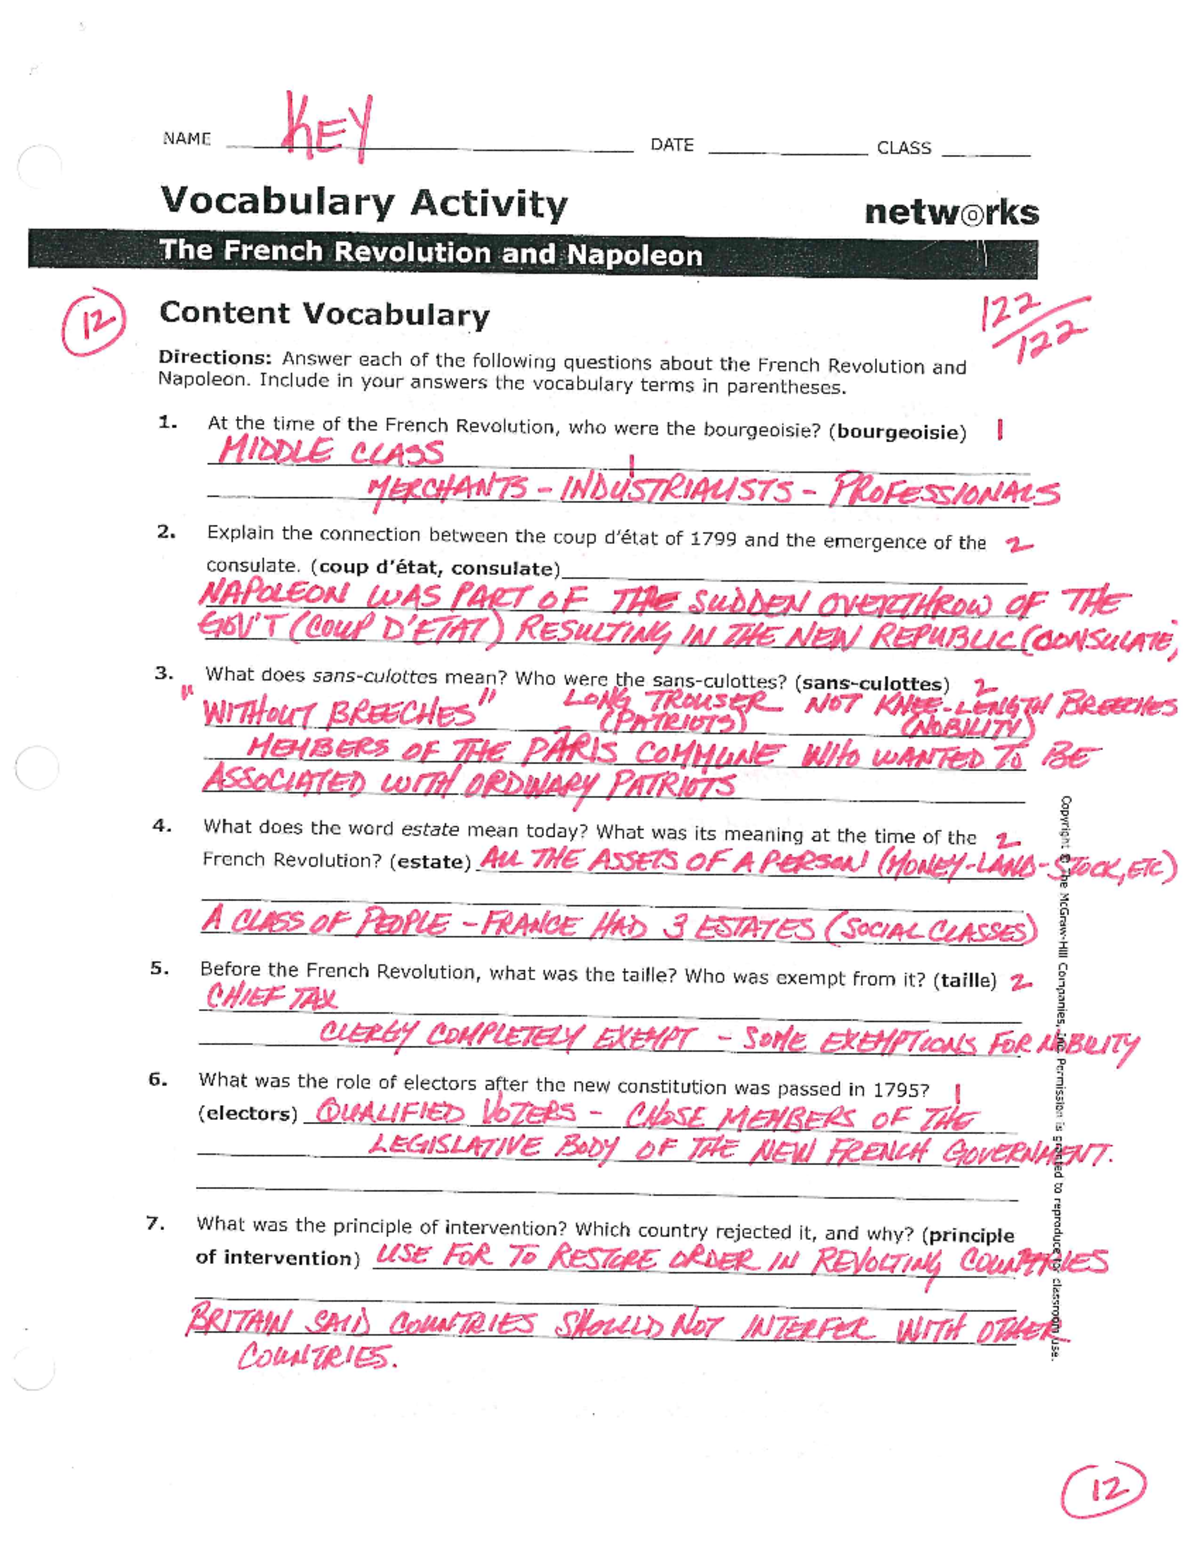 NAME KEY DATE CLASS
Vocabulary Activity networks
The French Revolution and Napoleon
12 Content Vocabulary 122/122
Directions: Answer each of the following questions about the French Revolution and
Napoleon. Include in your answers the vocabulary terms in parentheses.
1. At the time of the French Revolution, who were the bourgeoisie? (bourgeoisie) 1
MIDDLE CLASS
MERCHANTS - INDUSTRIALISTS - PROFESSIONALS
2. Explain the connection between the coup d'état of 1799 and the emergence of the 2
consulate. (coup d'état, consulate)
NAPOLEON WAS PART OF THE SUDDEN OVERTHROW OF THE
GOV'T (COUP D'ETAT) RESULTING IN THE NEW REPUBLIC (CONSULATE)
3. What does sans-culottes mean? Who were the sans-culottes? (sans-culottes) 2
"WITHOUT BREECHES" LONG TROUSER NOT KNEE-LENGTH BREECHES
(PATRIOTS) (NOBILITY)
MEMBERS OF THE PARIS COMMUNE WHO WANTED TO BE
ASSOCIATED WITH ORDINARY PATRIOTS
4. What does the word estate mean today? What was its meaning at the time of the 2
French Revolution? (estate) ALL THE ASSETS OF A PERSON (MONEY-LAND-STOCK, ETC)
A CLASS OF PEOPLE - FRANCE HAD 3 ESTATES (SOCIAL CLASSES)
5. Before the French Revolution, what was the taille? Who was exempt from it? (taille) 2
CHIEF TAX
CLERGY COMPLETELY EXEMPT - SOME EXEMPTIONS FOR NOBILITY
6. What was the role of electors after the new constitution was passed in 1795? 1
(electors) QUALIFIED VOTERS - CHOSE MEMBERS OF THE
LEGISLATIVE BODY OF THE NEW FRENCH GOVERNMENT.
7. What was the principle of intervention? Which country rejected it, and why? (principle
of intervention) USE FOR TO RESTORE ORDER IN REVOLTING COUNTRIES
BRITAIN SAID COUNTRIES SHOULD NOT INTERFER WITH OTHER
COUNTRIES.
Copyright © The McGraw-Hill Companies, Inc. Permission is granted to reproduce for classroom use.
12